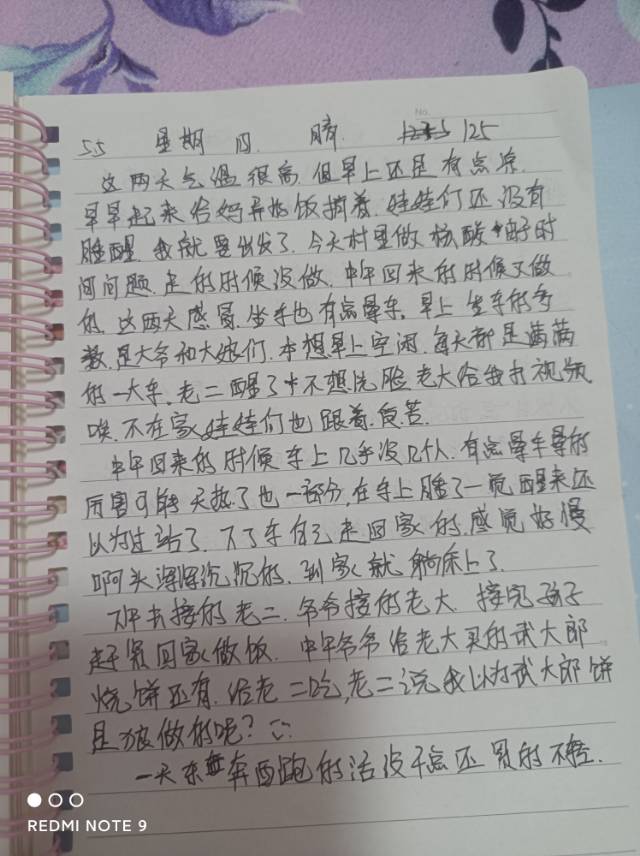 No.
5.5 星期四 晴. 125
这两天气温很高. 但早上还是有点凉.
早早起来给妈弄好饭搁着. 娃娃们还没有
睡醒. 我就要出发了. 今天村里做核酸 时
间问题. 走的时候没做. 中午回来的时候又做
的. 这两天感冒. 坐车也有点晕车. 早上坐车的多
数是大爷和大娘们. 本想早上空闲. 每天都是满满
的一大车. 老二醒了 不想洗脸 老大给我打视频
唉. 不在家娃娃们也跟着受苦.
中午回来的时候车上几乎没几个人. 有点晕车晕的
厉害可能天热了也一部分, 在车上睡了一觉 醒来还
以为过站了. 下了车自己走回家的. 感觉好慢
啊头浑浑沉沉的. 到家就躺床上了.
下午去接的老二. 爷爷接的老大. 接完孩子
赶紧回家做饭. 中午爷爷给老大买的武大郎
烧饼还有. 给老二吃, 老二说我以为武大郎饼
是狼做的呢?
一天东奔西跑的活没干点还累的不轻.
REDMI NOTE 9